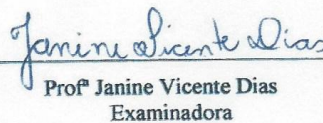 Janine Vicente Dias
Profª Janine Vicente Dias
Examinadora